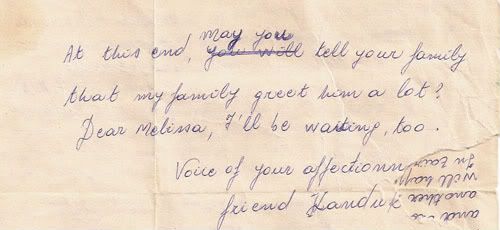 At this end, may you you will tell your family
that my family greet him a lot?
Dear Melissa, I'll be waiting, too.
Voice of your affectionn
friend
will happ
another
and